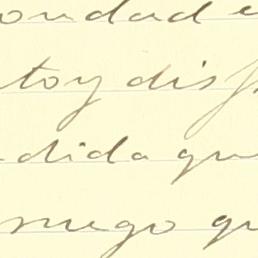 ondad e
toy disp
dida que
mego qu